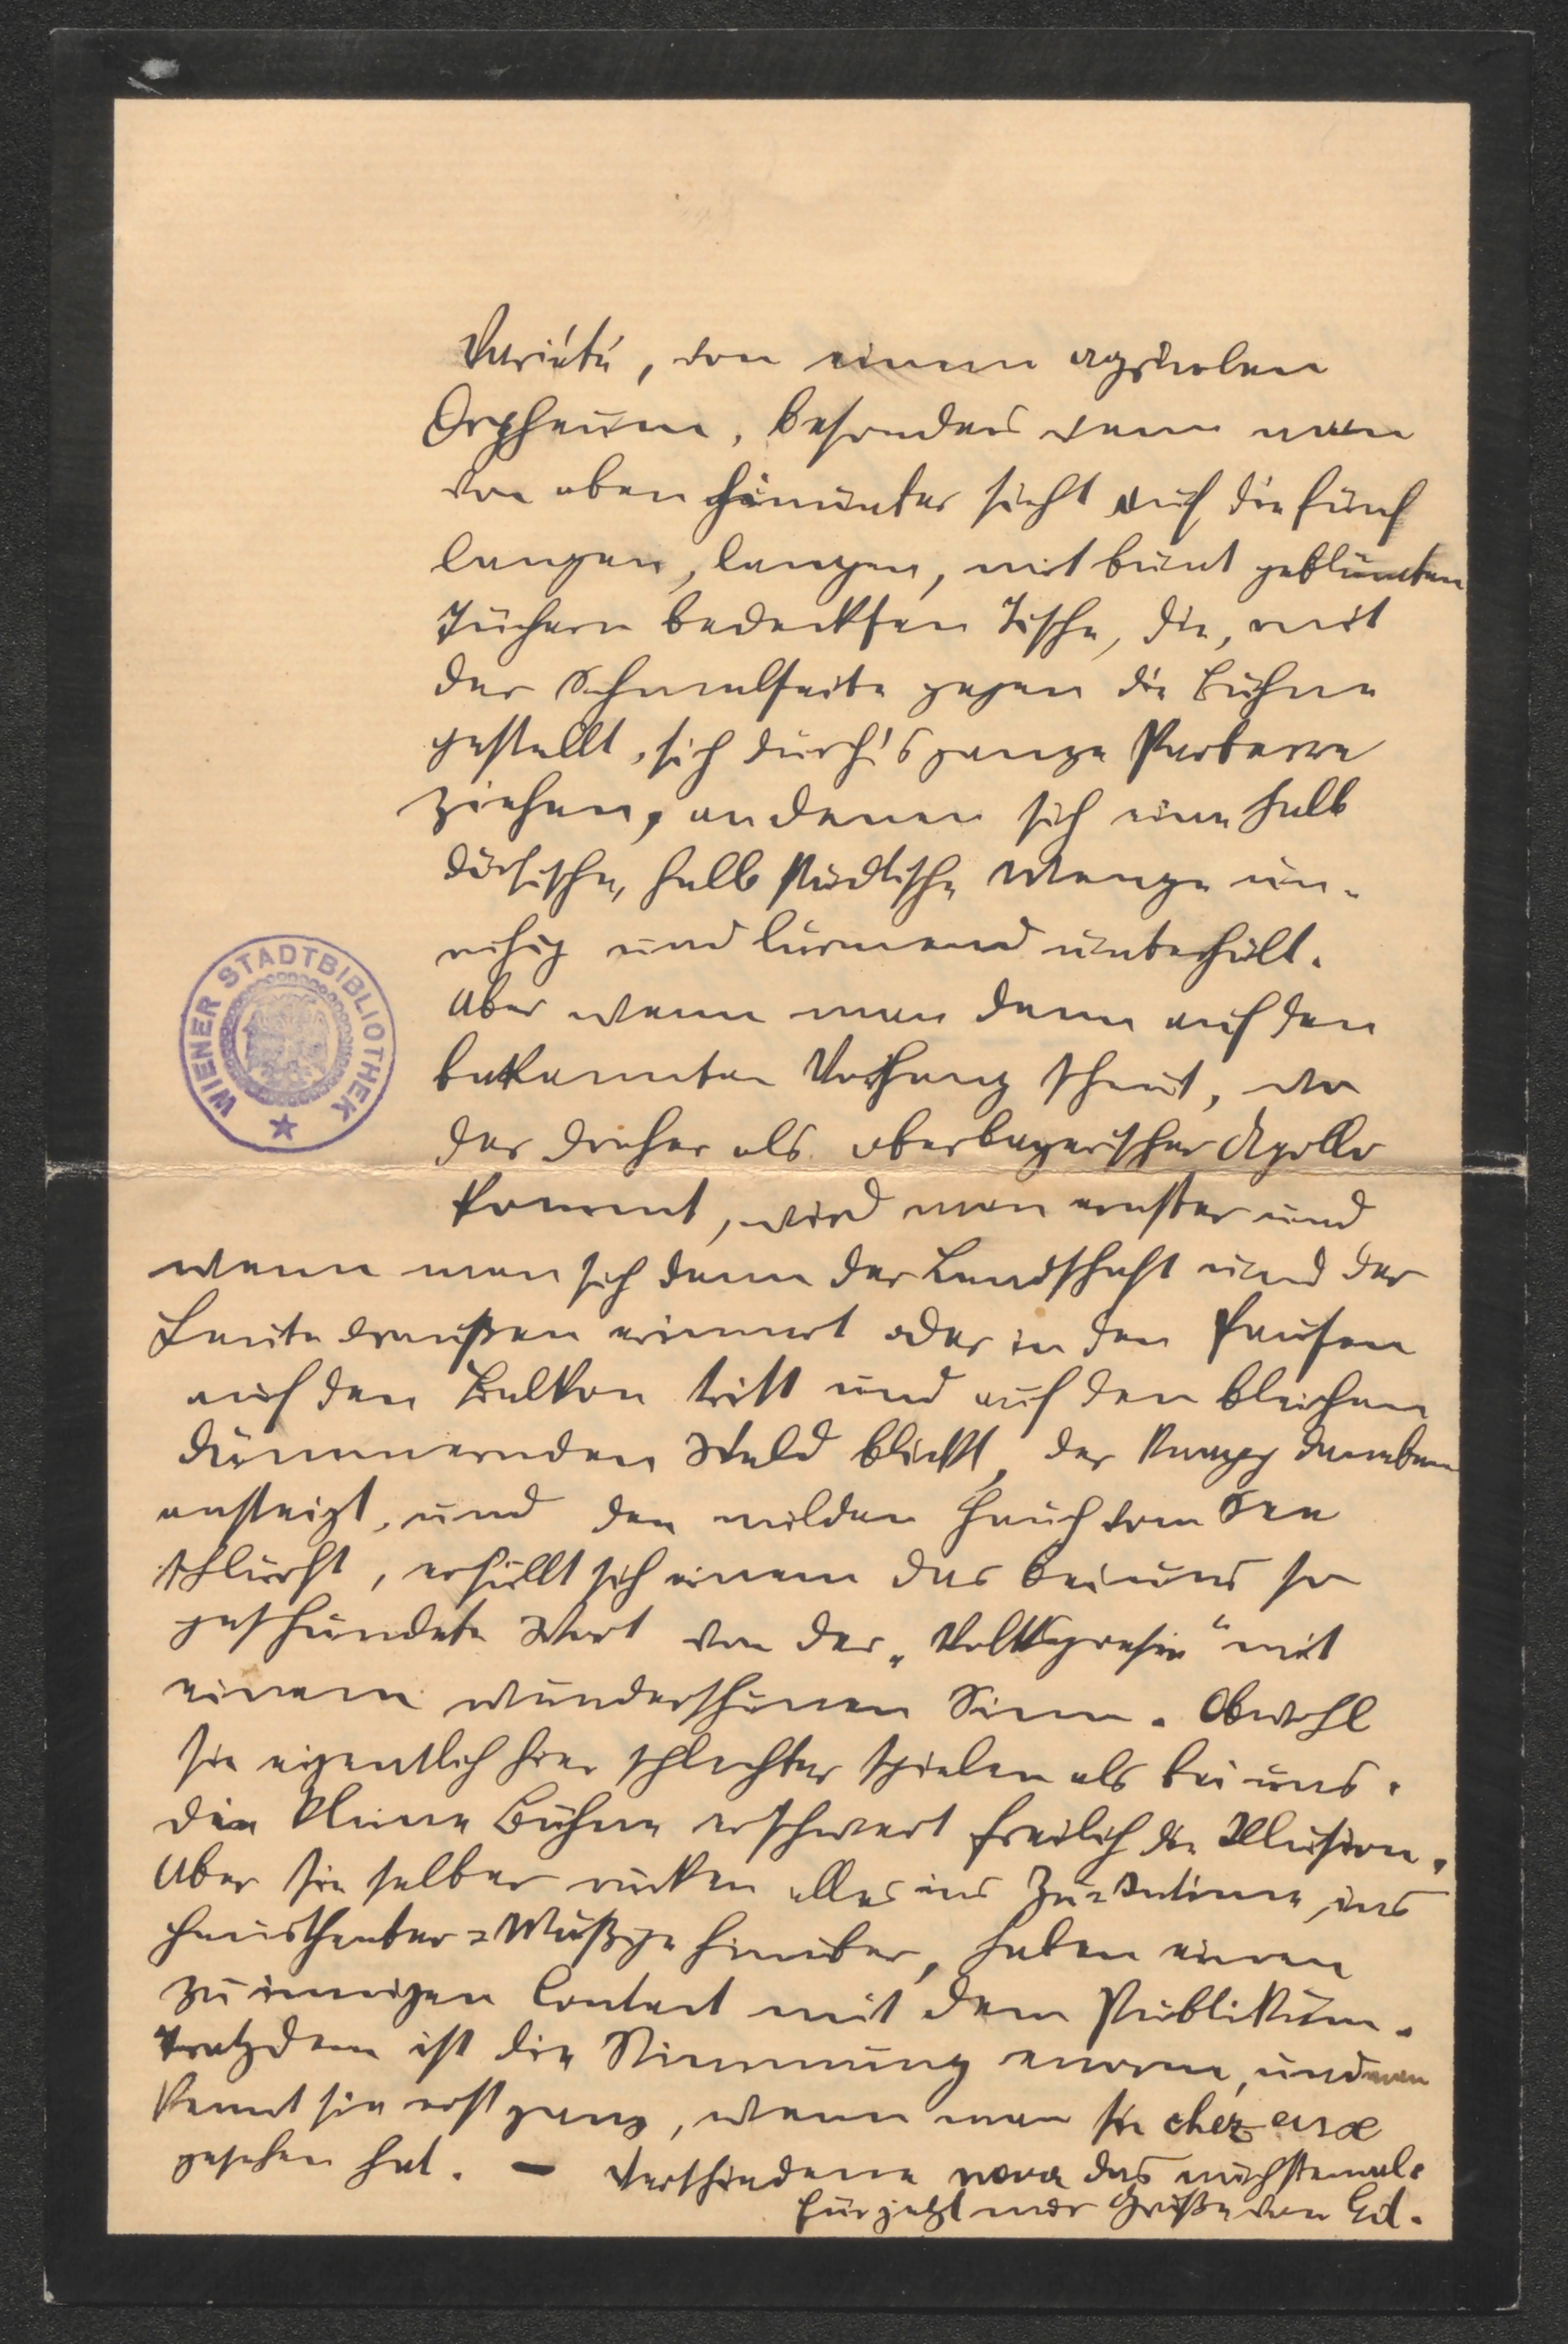 Variété, von einem agricolen
Orpheum, besonders wenn man
von oben hinunter sieht auf die fünf
langen, langen, mit bunt geblümten
Tüchern bedeckten Tische, die, mit
der Schmalseite gegen die Bühne
gestellt, sich durch's ganze Parterre
ziehen, an denen sich eine halb
dörfische, halb städtische Menge un-
ruhig und lärmend unterhält.
Aber wenn man dann auf den
bekannten Vorhang schaut, wo
der Dreher als oberbayerischer Apollo
kommt, wird man ernster und
wenn man sich dann der Landschaft und der
Leute draußen erinnert oder in den Pausen
auf den Balkon tritt und auf den bleichen
dämmernden Wald blickt, der knapp daneben
ansteigt, und den milden Hauch vom See
schlürft, erfüllt sich einem das bei uns so
geschundete Wort von der „Volkspoesie“ mit
einem wunderschönen Sinn. Obwohl
sie eigentlich hier schlechter spielen als bei uns.
Die kleine Bühne erschwert freilich die Illusion.
Aber sie selber rücken alles ins Zu-Intime, ins
Haustheater-Mäßige hinüber, haben einen
zu innigen Contact mit dem Publikum.
Trotzdem ist die Stimmung enorm, und man
kennt sie erst ganz, wenn man sie chez eux
gesehen hat. — Verschiedene nova das nächstemal.
Für jetzt nur Grüße von
WIENER STADTBIBLIOTHEK